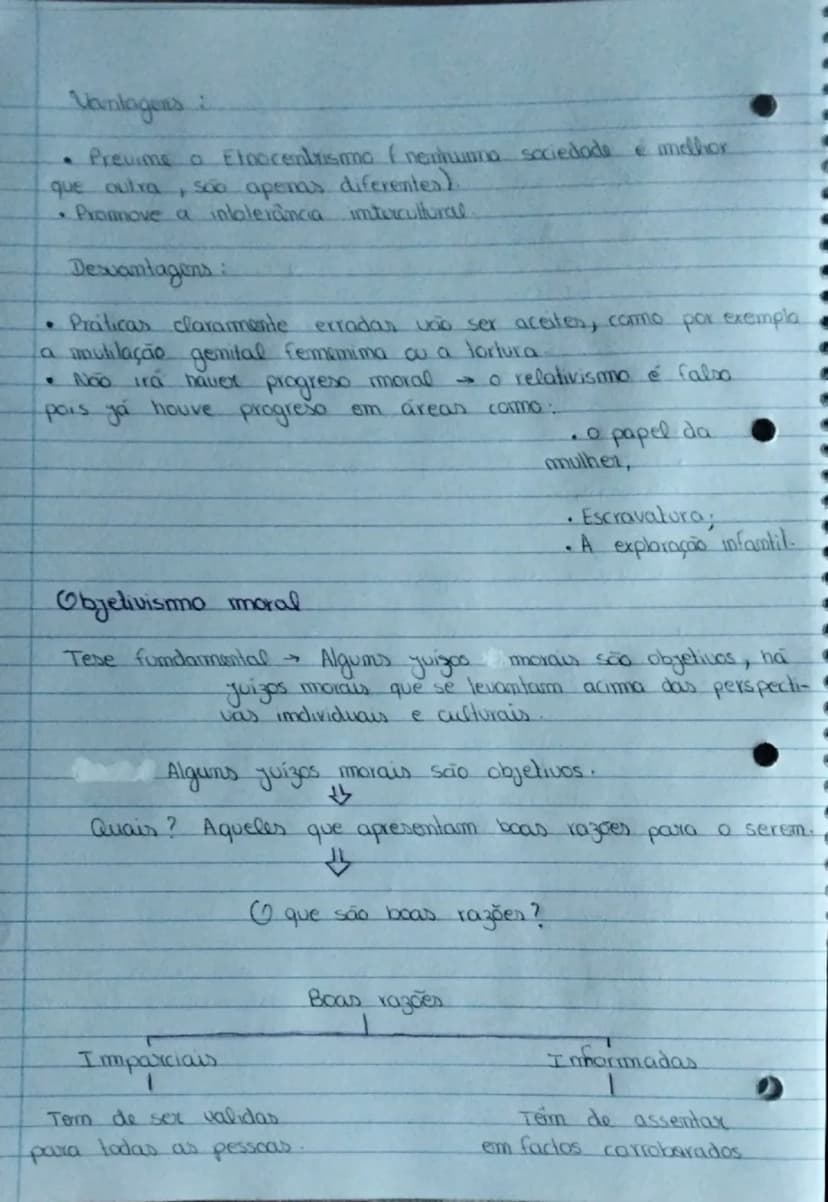 Vantagens :
• Previne o Etnocentrismo (nenhuma sociedade é melhor
que outra, são apenas diferentes).
• Promove a intolerância intercultural.
Desvantagens :
• Práticas claramente erradas vão ser aceites, como por exemplo
a mutilação genital feminina ou a tortura.
• Não irá haver progreso moral → o relativismo é falso
pois já houve progreso em áreas como:
. o papel da
mulher,
. Escravatura;
. A exploração infantil.
Objetivismo moral
Tese fundamental → Alguns juizos morais são objetivos, há
juizos morais que se levantam acima das perspecti-
vas individuais e culturais.
Alguns juízos morais são objetivos.
⇓
Quais? Aqueles que apresentam boas razões para o serem.
⇓
O que são boas razões?
Boas razões
Imparciais Informadas
Tem de ser validas Têm de assentar
para todas as pessoas. em factos corroborados